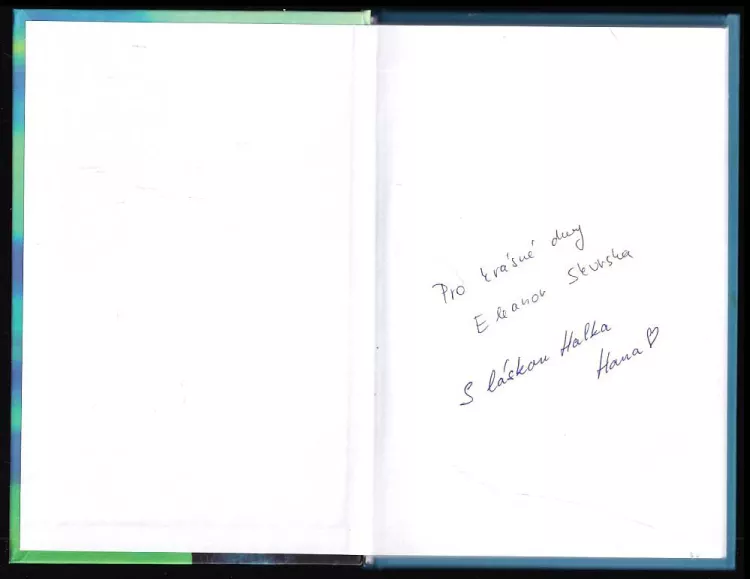 Pro krásné dny
Eleanor Skurska
S láskou Halka
Hana